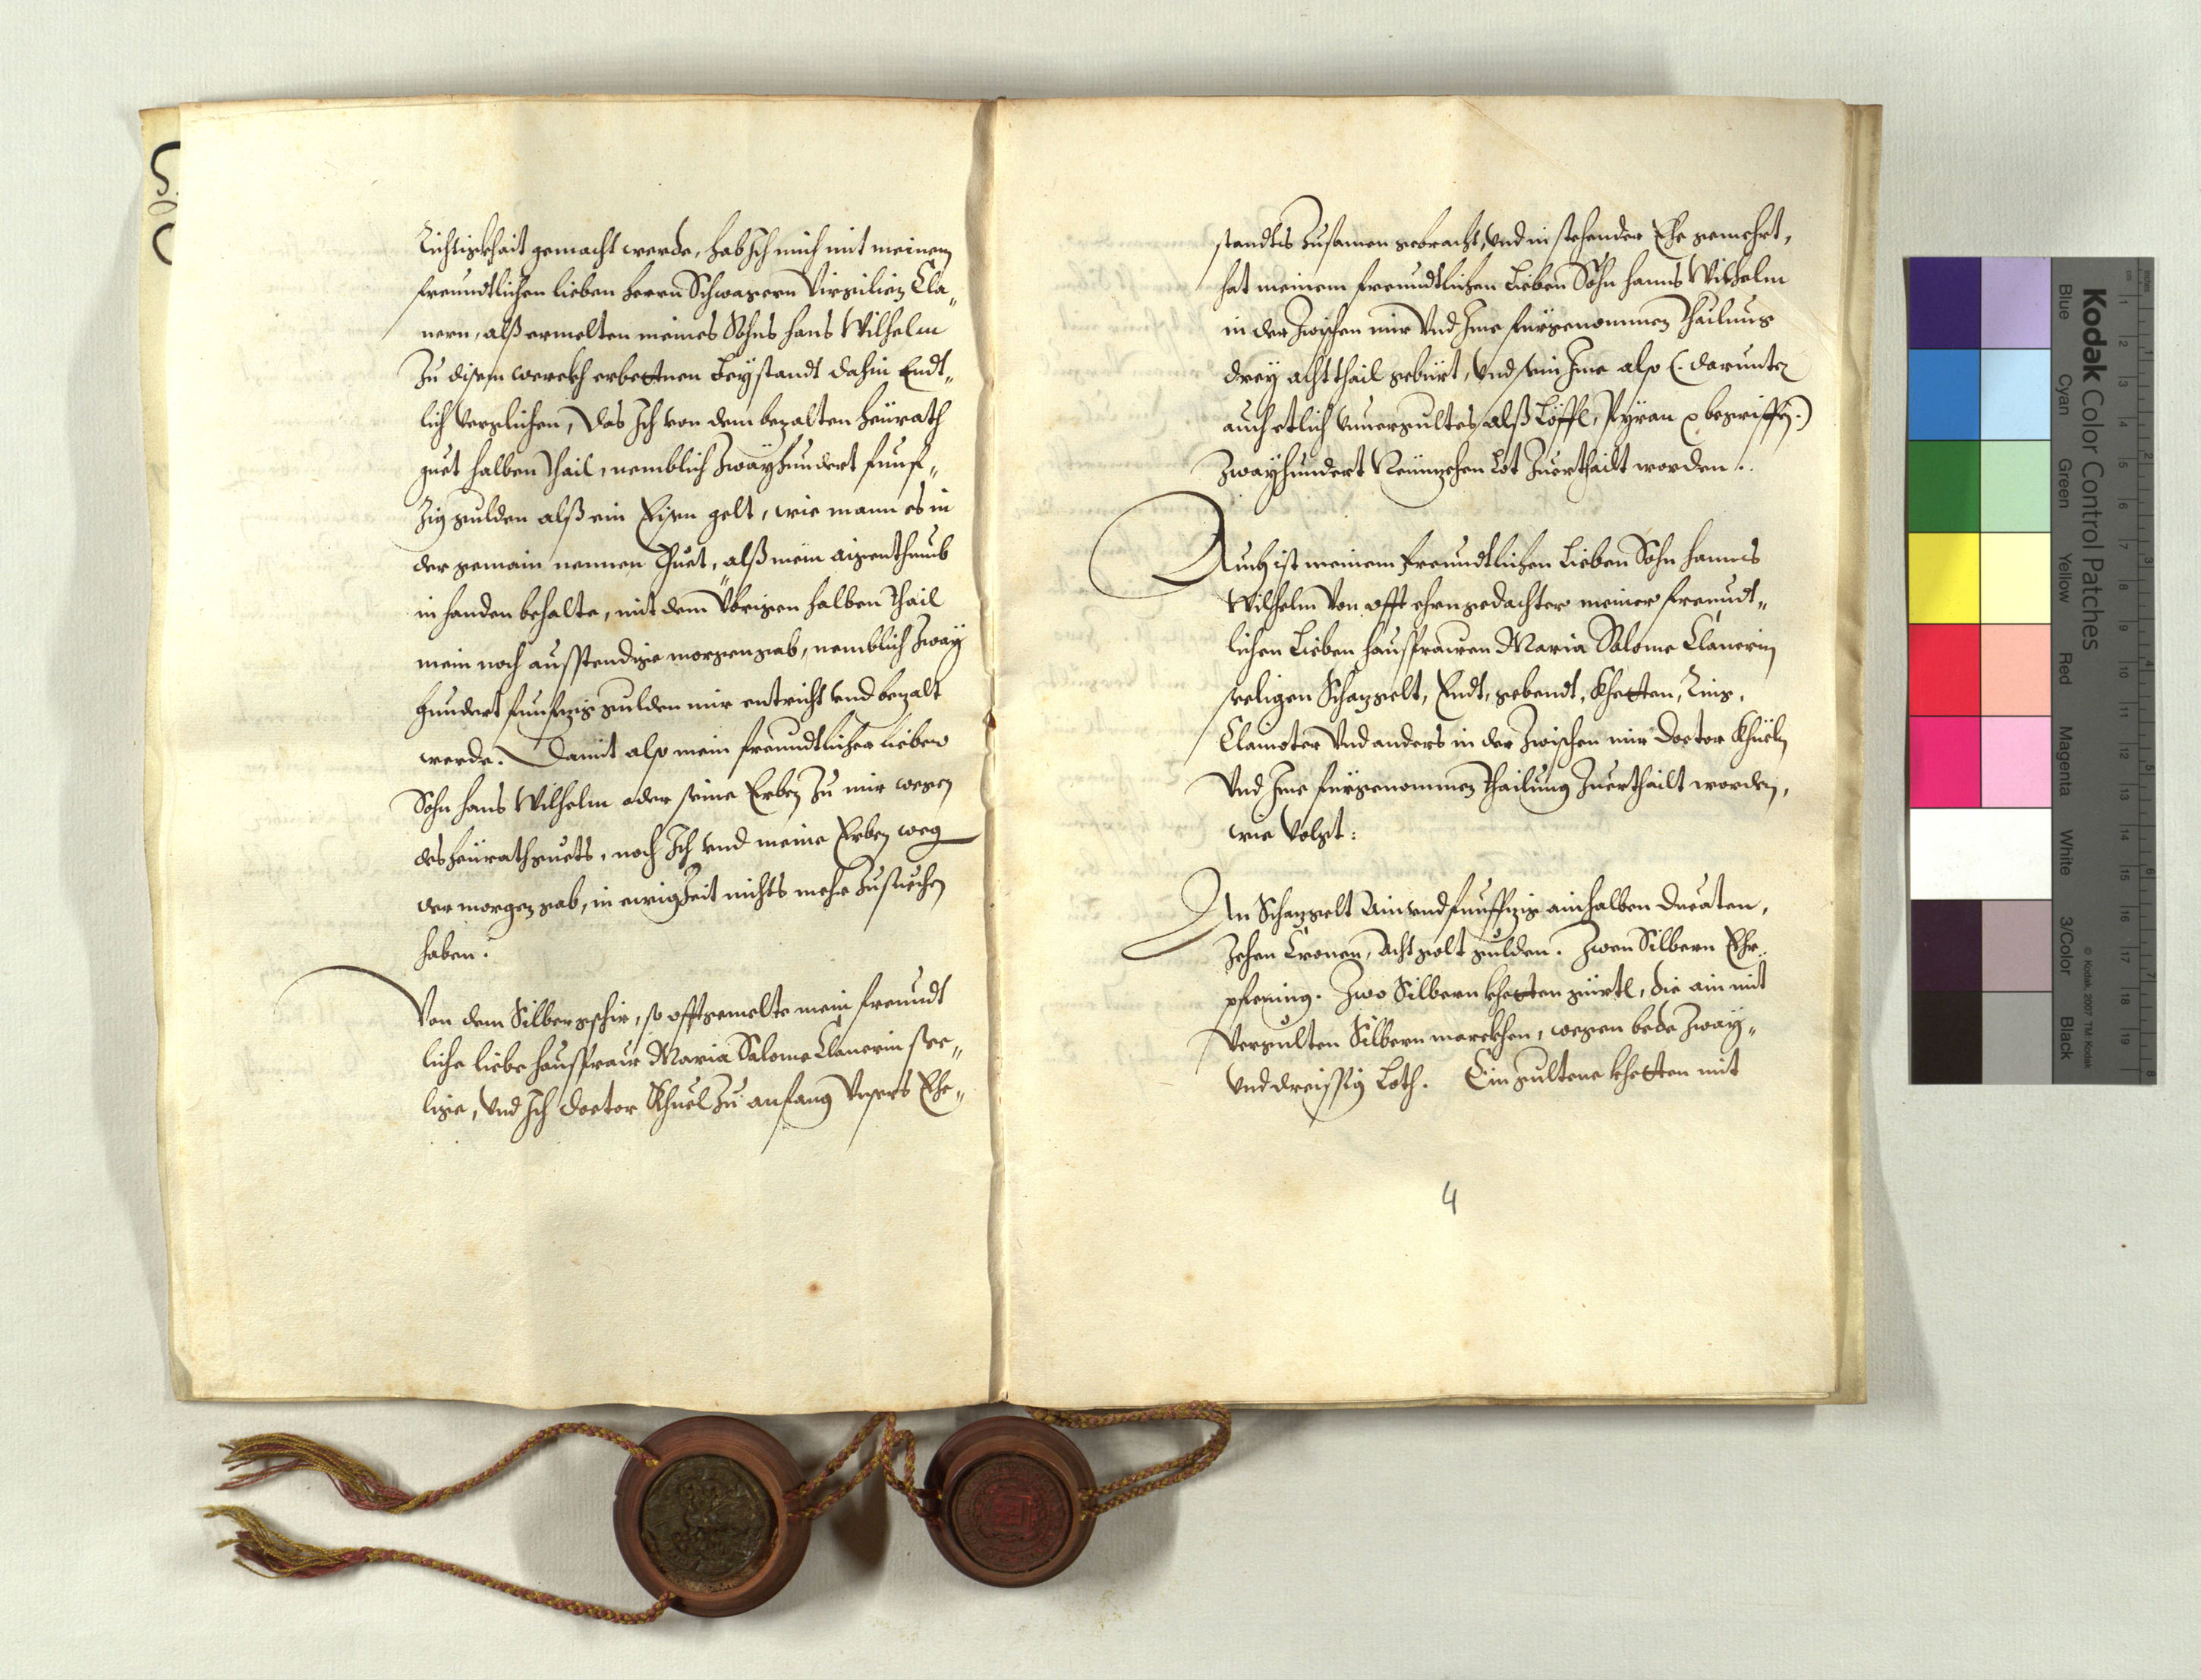 Richtigkhait gemacht werde, hab Ich mich mit meinem
freundtlichen lieben herrn Schwagern Virgilien Cla„
nern, alß ermelten meines Sohns Hans Wilhelm
Zu disem werckh erbettnen Beystandt dahin Endt„
lich verglichen, Das Ich von dem bezalten heürath
guet halben thail, nemblich Zwayhundert funf„
zig gulden alß ein Eisen gelt, wie mann es in
der gemain nennen thuet, alß mein aigenthumb
in handen behalte, mit dem Übrigen halben thail
mein noch ausstendige morgengab, nemblich Zway
hundert funfzig gulden mir entricht vnd bezalt
werde. Damit also mein freundtlicher lieber
Sohn Hans Wilhelm oder seine Erben Zu mir wegen
des heürathguets, noch Ich vnd meine Erben weg
der morgengab, in ewigZeit nichts mehr Zusuechen
haben.
Von dem Silbergschir, so offtgemelte mein freundt
liche liebe haussfraw Maria Salome Clanerin see„
lige, vnd Ich Doctor Khuel Zu anfang Vnsers Ehe„
standts Zusamen gebracht, vnd in stehender Ehe gemehrt,
hat meinem freundtlichen Lieben Sohn Hanns Wilhelm
in der Zwischen mir vnd Ime fürgenommen thailung
drey acht thail gebürt, vnd sein Ime also (: darunter
auch etlich vnuergultes alß Löffl, Pyran begriffen :)
Zwayhundert Neünzehen Lot Zuerthailt worden.
Auch ist meinem freundtlichen Lieben Sohn Hanns
Wilhelm von offt ehrngedachter meiner freundt„
lichen Lieben haussfrawen Maria Salome Clanerin
seeligen Schazgelt, gebendt, Khetten, Ring,
Clainoter vnd anders in der Zwischen mir Doctor Khueln
Vnd Ime fürgenommen thailung Zuerthailt worden,
wie volgt:
An Schazgelt Ainvndfunffzig ain halben Ducaten,
Zehen Cronen, Acht golt gulden. Zwen Silbern Ehr
pfening. Zwo Silbern khetten gürtl, die ain mit
vergulten Silbern marckhen, wegen bede Zway„
vnddreissig Loth. Ein gultene khetten mit
4
Kodak Color Control Patches
Blue Cyan Green Yellow Red Magenta White 3/Color Black
© Kodak, 2007 TM: Kodak